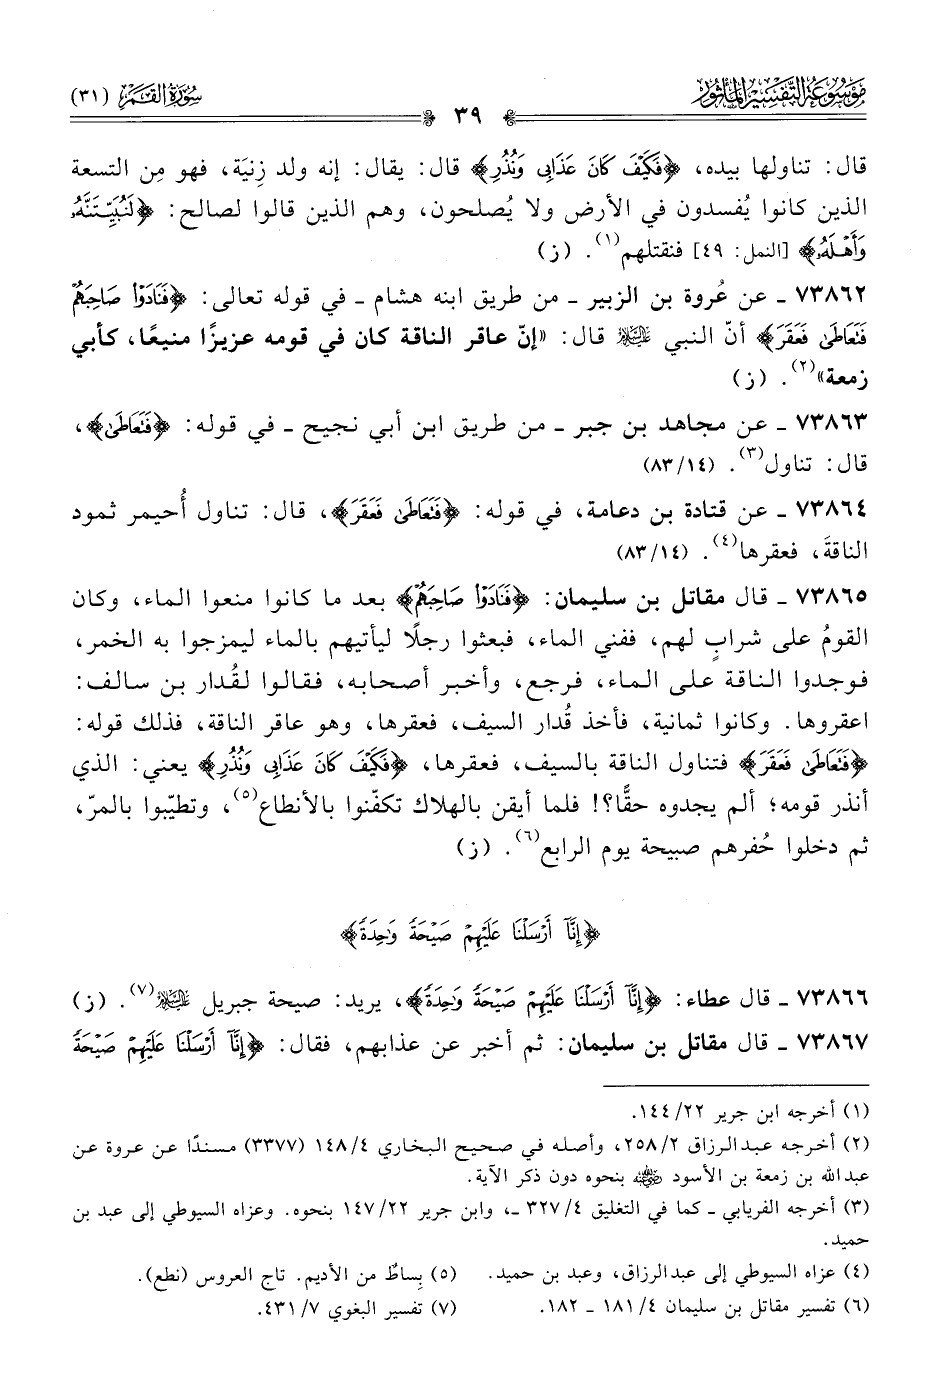 موسوعة التفسير المأثور
سورة القمر (٣١)
٣٩
قال: تناولها بيده، ﴿فَكَيْفَ كَانَ عَذَابِي وَنُذُرِ﴾ قال: يقال: إنه ولد زِنيَة، فهو مِن التسعة
الذين كانوا يُفسدون في الأرض ولا يُصلحون، وهم الذين قالوا لصالح: ﴿لَنُبَيِّتَنَّهُ
وَأَهْلَهُ﴾ [النمل: ٤٩] فنقتلهم(١). (ز)
٧٣٨٦٢ ـ عن عُروة بن الزبير ـ من طريق ابنه هشام ـ في قوله تعالى: ﴿فَنَادَوْا صَاحِبَهُمْ
فَتَعَاطَى فَعَقَرَ﴾ أنّ النبي ﷺ قال: «إنّ عاقر الناقة كان في قومه عزيزًا منيعًا، كأبي
زمعة»(٢). (ز)
٧٣٨٦٣ ـ عن مجاهد بن جبر ـ من طريق ابن أبي نجيح ـ في قوله: ﴿فَتَعَاطَى﴾،
قال: تناول(٣). (٨٣/١٤)
٧٣٨٦٤ ـ عن قتادة بن دعامة، في قوله: ﴿فَتَعَاطَى فَعَقَرَ﴾، قال: تناول أُحيمر ثمود
الناقةَ، فعقرها(٤). (٨٣/١٤)
٧٣٨٦٥ ـ قال مقاتل بن سليمان: ﴿فَنَادَوْا صَاحِبَهُمْ﴾ بعد ما كانوا منعوا الماء، وكان
القومُ على شرابٍ لهم، ففني الماء، فبعثوا رجلًا ليأتيهم بالماء ليمزجوا به الخمر،
فوجدوا الناقة على الماء، فرجع، وأخبر أصحابه، فقالوا لقُدار بن سالف:
اعقروها. وكانوا ثمانية، فأخذ قُدار السيف، فعقرها، وهو عاقر الناقة، فذلك قوله:
﴿فَتَعَاطَى فَعَقَرَ﴾ فتناول الناقة بالسيف، فعقرها، ﴿فَكَيْفَ كَانَ عَذَابِي وَنُذُرِ﴾ يعني: الذي
أنذر قومه؛ ألم يجدوه حقًّا؟! فلما أيقن بالهلاك تكفّنوا بالأنطاع(٥)، وتطيّبوا بالمرّ،
ثم دخلوا حُفرهم صبيحة يوم الرابع(٦). (ز)
﴿إِنَّا أَرْسَلْنَا عَلَيْهِمْ صَيْحَةً وَاحِدَةً﴾
٧٣٨٦٦ ـ قال عطاء: ﴿إِنَّا أَرْسَلْنَا عَلَيْهِمْ صَيْحَةً وَاحِدَةً﴾، يريد: صيحة جبريل عليه السلام(٧). (ز)
٧٣٨٦٧ ـ قال مقاتل بن سليمان: ثم أخبر عن عذابهم، فقال: ﴿إِنَّا أَرْسَلْنَا عَلَيْهِمْ صَيْحَةً
(١) أخرجه ابن جرير ١٤٤/٢٢.
(٢) أخرجه عبدالرزاق ٢٥٨/٢، وأصله في صحيح البخاري ١٤٨/٤ (٣٣٧٧) مسندًا عن عروة عن
عبدالله بن زمعة بن الأسود رضي الله عنه بنحوه دون ذكر الآية.
(٣) أخرجه الفريابي ـ كما في التغليق ٣٢٧/٤ ـ، وابن جرير ١٤٧/٢٢ بنحوه. وعزاه السيوطي إلى عبد بن
حميد.
(٤) عزاه السيوطي إلى عبدالرزاق، وعبد بن حميد. (٥) بِساطٌ من الأديم. تاج العروس (نطع).
(٦) تفسير مقاتل بن سليمان ١٨١/٤ ـ ١٨٢. (٧) تفسير البغوي ٤٣١/٧.